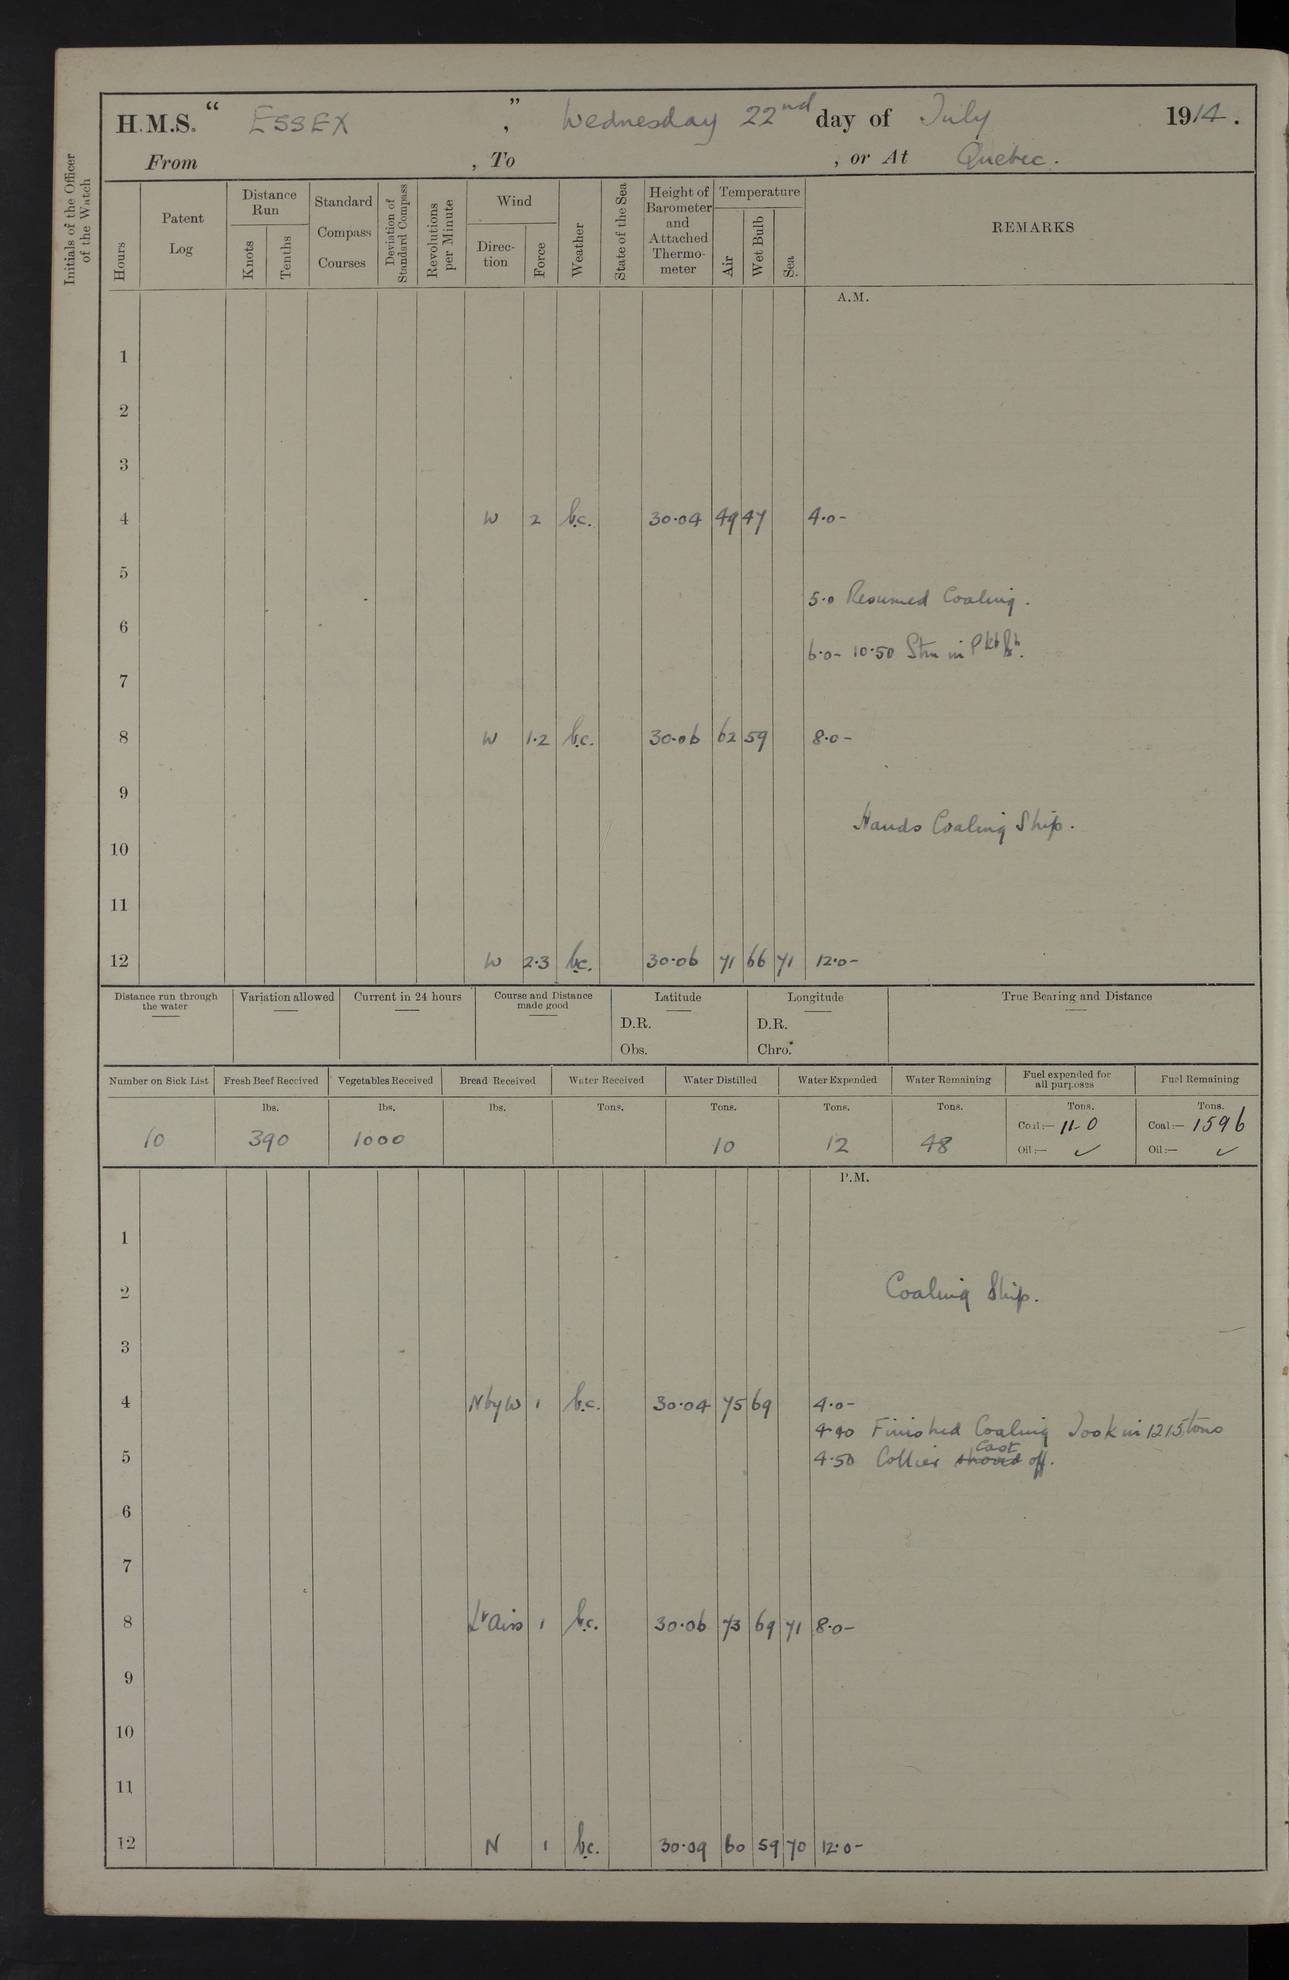 H.M.S. “ ESSEX ”, Wednesday 22nd day of July 1914.
From , To , or At Quebec.
Initials of the Officer of the Watch
Hours
Patent Log
Distance Run
Knots
Tenths
Standard Compass Courses
Deviation of Standard Compass
Revolutions per Minute
Wind
Direction
Force
Weather
State of the Sea
Height of Barometer and Attached Thermometer
Temperature
Air
Wet Bulb
Sea
REMARKS
A.M.
1
2
3
4 W 2 b.c. 30.04 49 47 4.0-
5
5.0 Resumed Coaling.
6
6.0- 10.50 Stm in
7
8 W 1.2 b.c. 30.06 62 59 8.0-
9
Hands Coaling Ship.
10
11
12 W 2.3 b.c. 30.06 71 66 71 12.0-
Distance run through the water
Variation allowed
Current in 24 hours
Course and Distance made good
Latitude
D.R.
Obs.
Longitude
D.R.
Chro.
True Bearing and Distance
Number on Sick List Fresh Beef Received Vegetables Received Bread Received Water Received Water Distilled Water Expended Water Remaining Fuel expended for all purposes Fuel Remaining
lbs. lbs. lbs. Tons. Tons. Tons. Tons. Tons. Tons.
Coal:— 110 Coal:— 1596
10 390 1000 10 12 48
Oil:— ✓ Oil:— ✓
P.M.
1
2 Coaling Ship.
3
4 N by W 1 b.c. 30.04 75 69 4.0-
4.40 Finished Coaling Took in 1215 tons
5 4.50 Collier shoved cast off.
6
7
8 Lt Airs 1 b.c. 30.06 73 69 71 8.0-
9
10
11
12 N 1 b.c. 30.09 60 59 70 12.0-